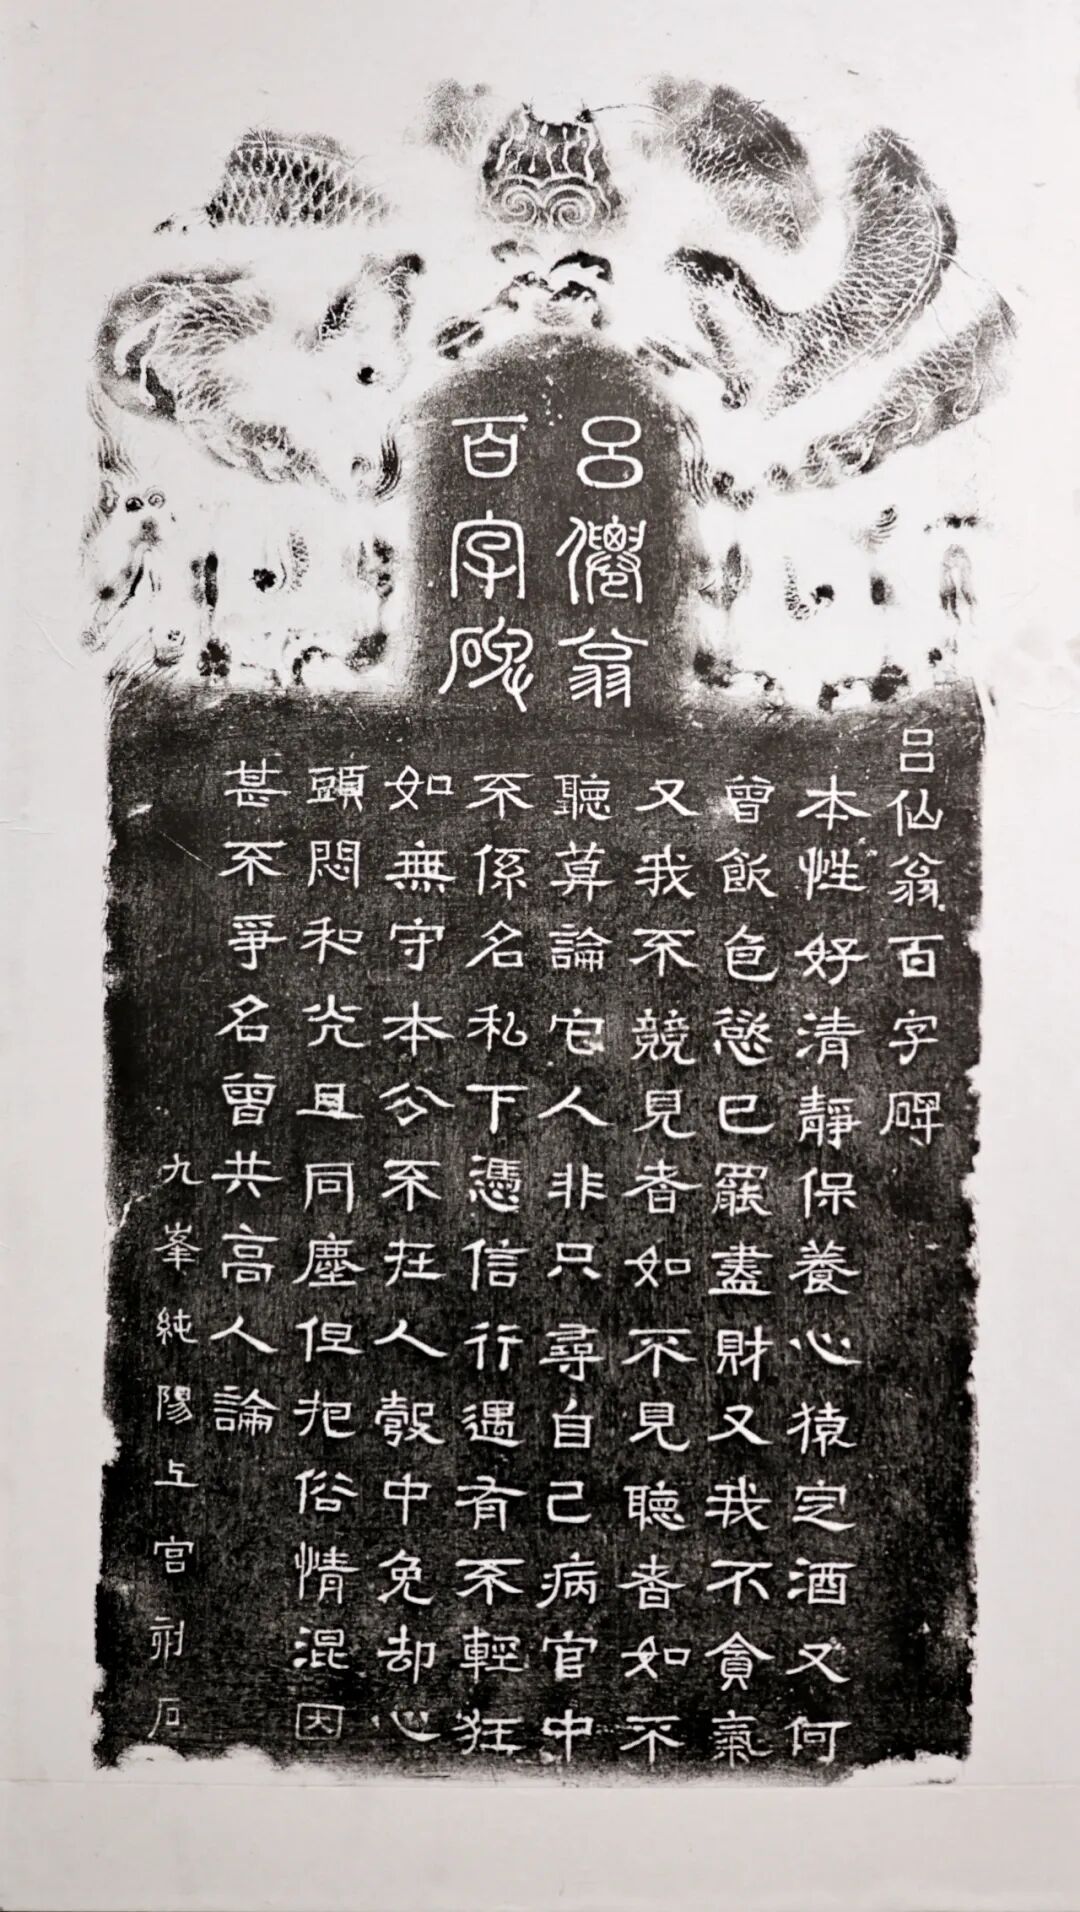 呂僊翁
百字碑
呂仙翁百字碑
本性好清靜保養心猿定酒又何
曾飲色慾已罷盡財又我不貪氣
又我不競見者如不見聽者如不
聽莫論它人非只尋自己病官中
不係名私下憑信行遇有不輕狂
如無守本分不在人彀中免却心
頭悶和光且同塵但把俗情混因
甚不爭名曾共高人論
九峯純陽上宮刱石